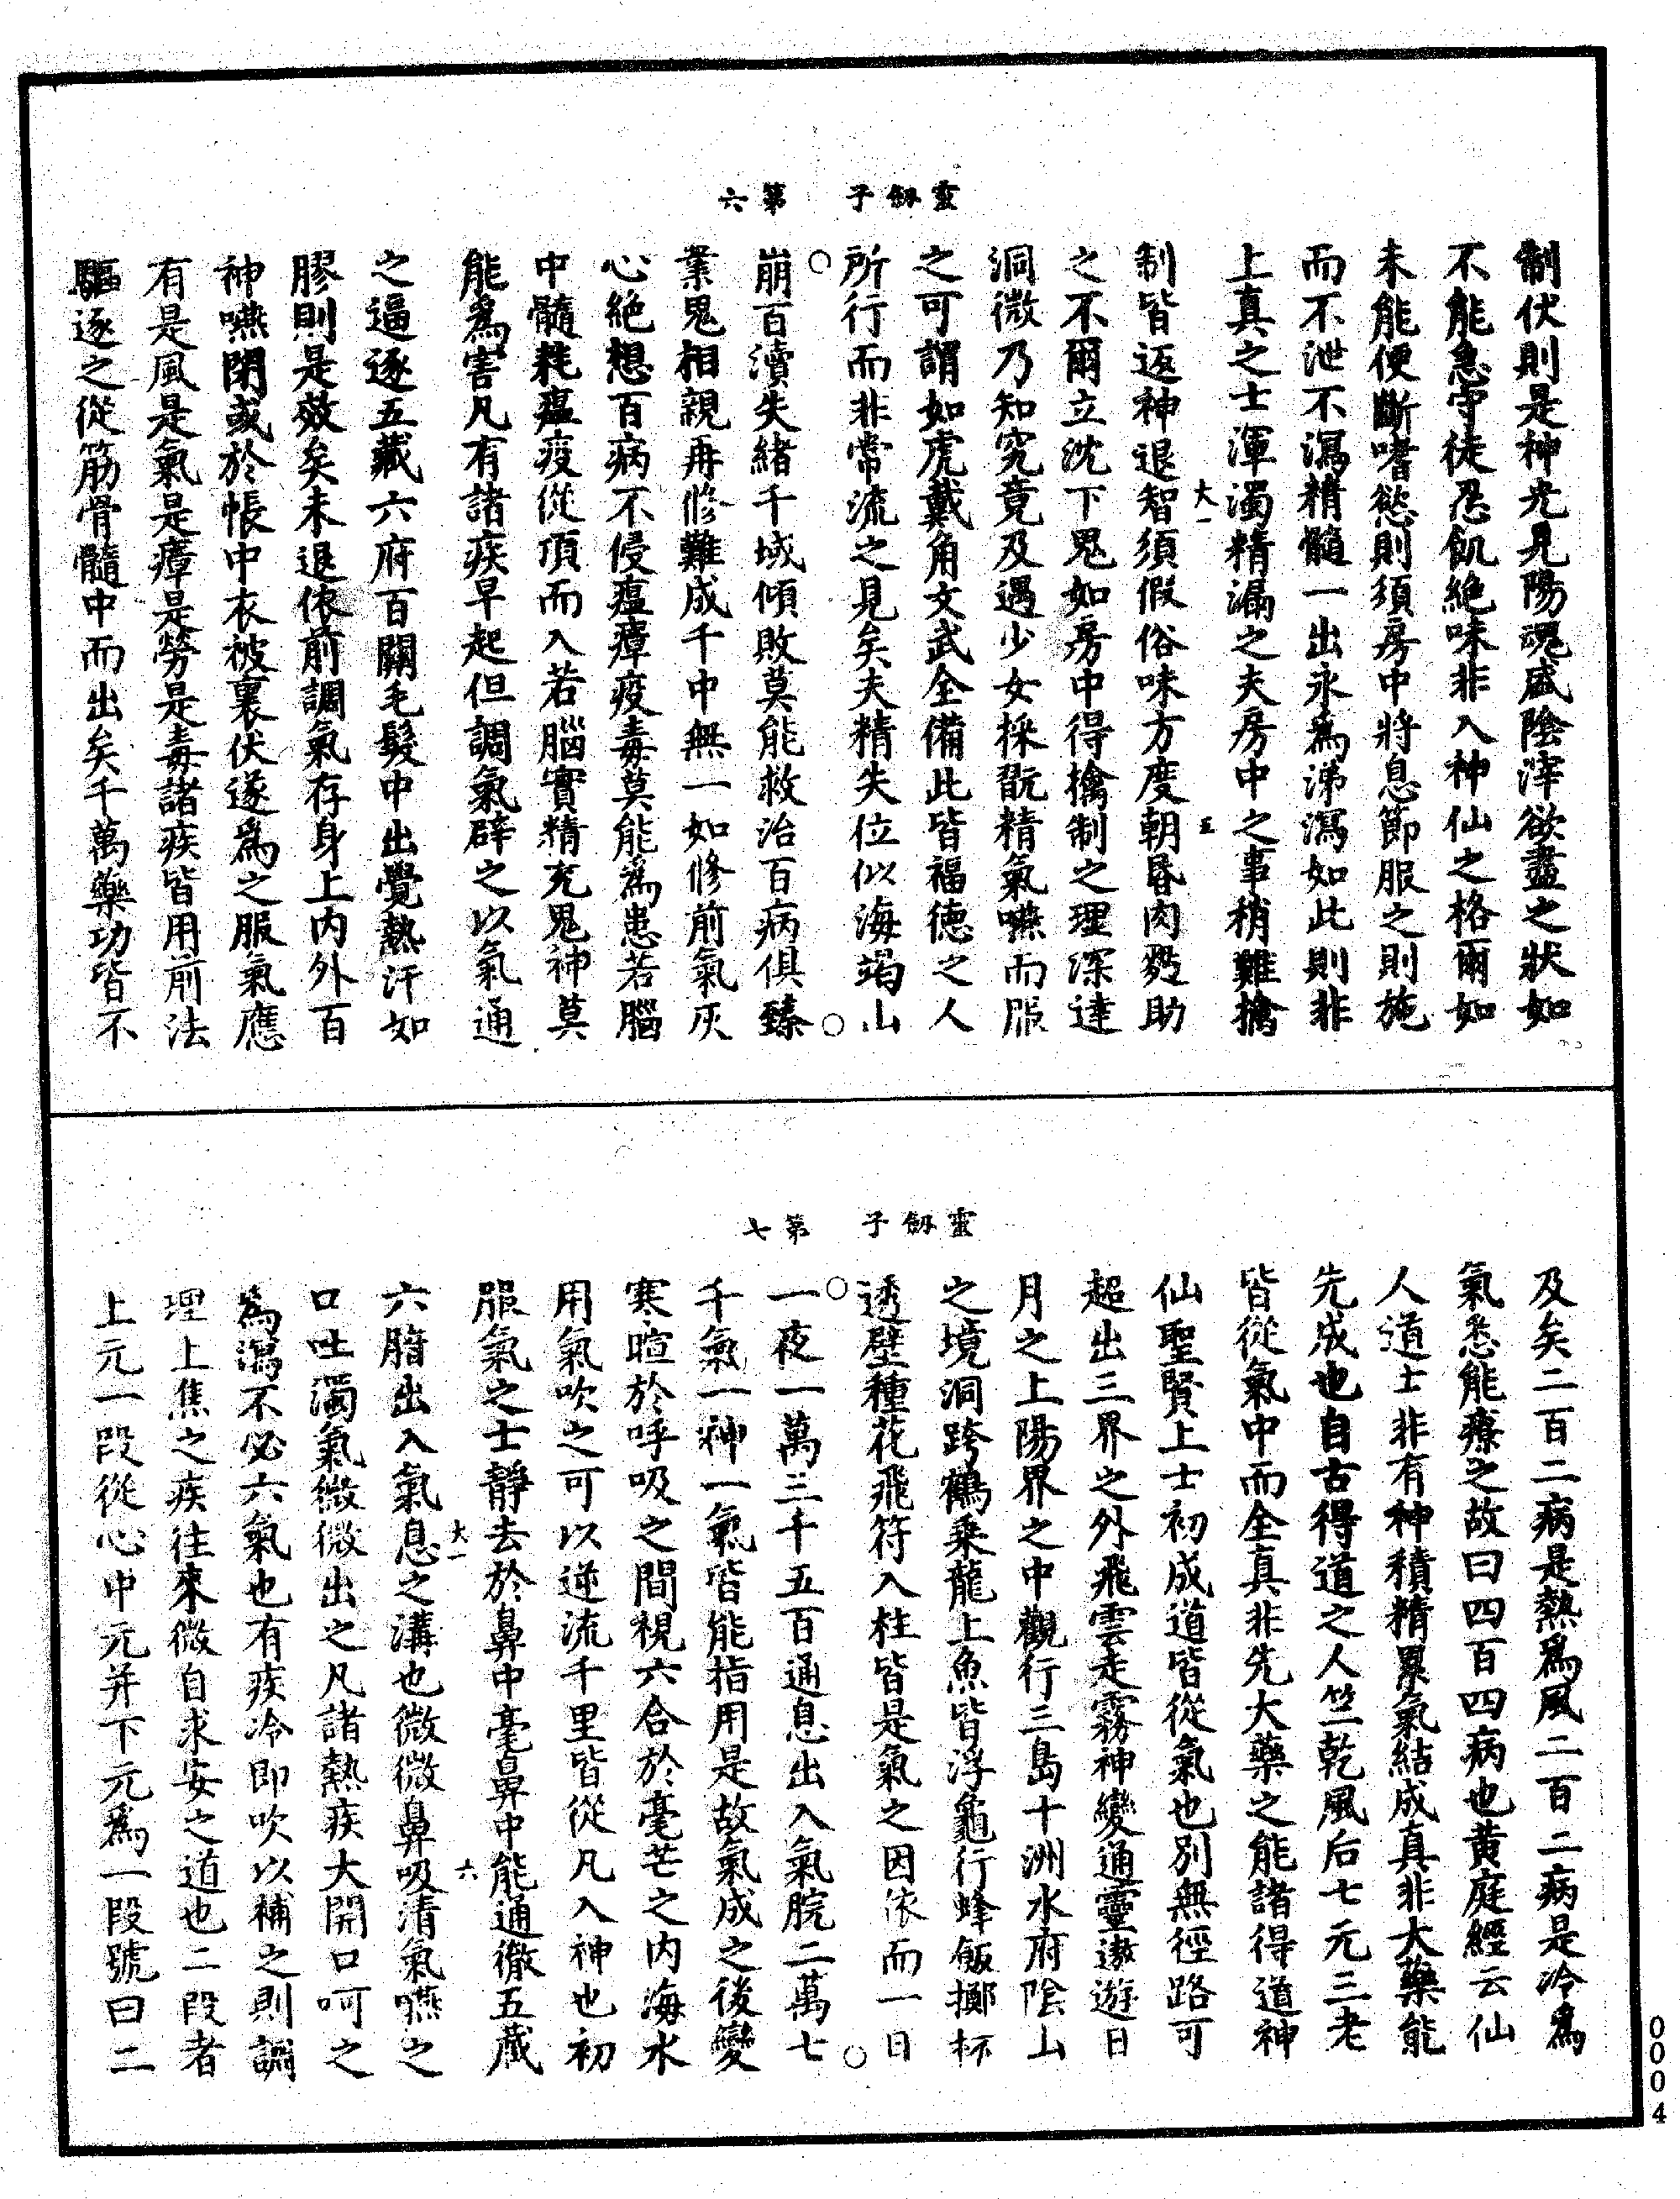 靈劔子　第六
制伏則是神光見陽魂盛陰滓欲盡之狀如
不能息帝徒忍飢絶味非入神仙之格爾如
未能便斷嗜慾則須房中將息節服之則施
而不泄不瀉精髓一出永爲涕瀉如此則非
上真之士渾濁精漏之夫房中之事稍難擒
大一　五
制皆返神退智須假俗味方度朝昏肉麪助
之不爾立沈下鬼如房中得擒制之理深達
洞微乃知究竟及遇少女採翫精氣嚥而服
之可謂如虎戴角文武全備此皆福德之人
所行而非常流之見矣夫精失位似海竭山
崩百瀆失緒千城傾敗莫能救治百病俱臻
業鬼相親再修難成千中無一如修前氣灰
心絶想百病不侵瘟瘴疫毒莫能爲患若腦
中髓耗瘟疫從頂而入若腦實精充鬼神莫
能爲害凡有諸疾早起但調氣辟之以氣通
之逼逐五藏六府百關毛髮中出覺熱汗如
膠則是效矣未退依前調氣存身上内外百
神嚥閉或於帳中衣被裏伏遂爲之服氣應
有是風是氣是瘴是勞是毒諸疾皆用前法
驅逐之從筋骨髓中而出矣千萬藥功皆不
靈劔子　第七
及矣二百二病是熱爲風二百二病是冷爲
氣悉能療之故曰四百四病也黄庭經云仙
人道士非有神積精累氣結成真非大藥能
先成也自古得道之人竺乾風后七元三老
皆從氣中而全真非先大藥之能諸得道神
仙聖賢上士初成道皆從氣也別無徑路可
超出三界之外飛雲走霧神變通靈遨遊日
月之上陽界之中觀行三島十洲水府陰山
之境洞跨鶴乗龍上魚皆浮龜行蜂飯擲杯
透壁種花飛符入柱皆是氣之因依而一日
一夜一萬三千五百通息出入氣脘二萬七
千氣一神一氣皆能指用是故氣成之後變
寒暄於呼吸之間視六合於毫芒之内海水
用氣吹之可以逆流千里皆從凡入神也初
服氣之士靜去於鼻中毫鼻中能通徹五藏
大一　六
六腊出入氣息之溝也微微鼻吸清氣嚥之
口吐濁氣微微出之凡諸熱疾大開口呵之
爲瀉不必六氣也有疾冷即吹以補之則調
理上焦之疾往來微自求安之道也二段者
上元一段從心中元并下元爲一段號曰二
0004